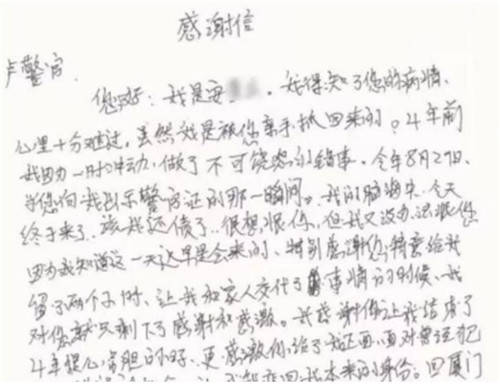 感谢信
卢警官
您好:我是安　　。我得知了您的病情、
心里十分难过,虽然我是被你亲手抓回来的。4年前
我因为一时冲动,做了不可饶恕的错事,今年8月29日、
当您向我出示警官证的那一瞬间。我的脑海中,今天
终于来了,该我还债了,很想恨你,但我又没办法恨你
因为我知道这一天迟早是会来的、特别感谢你,特意给我
留了两个小时、让我和家人交代了事情的时候、我
对您就只剩下了感谢和感激。我感谢你让我结束了
4年提心吊胆的日子、更感激你,给了我正面,面对曾经犯
我本来的身份。回厦门